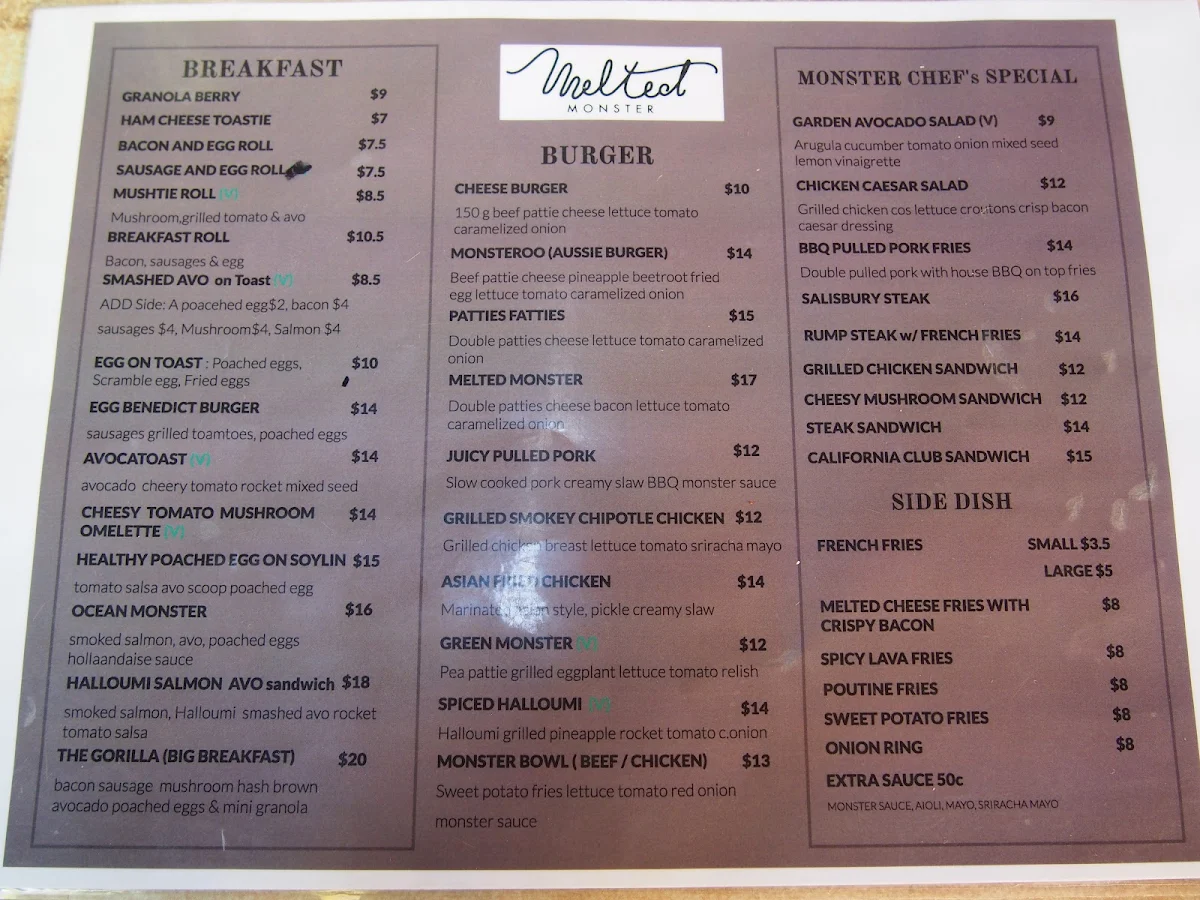 BREAKFAST
GRANOLA BERRY $9
HAM CHEESE TOASTIE $7
BACON AND EGG ROLL $7.5
SAUSAGE AND EGG ROLL $7.5
MUSHTIE ROLL (V) $8.5
Mushroom,grilled tomato & avo
BREAKFAST ROLL $10.5
Bacon, sausages & egg
SMASHED AVO on Toast (V) $8.5
ADD Side: A poacehed egg$2, bacon $4
sausages $4, Mushroom$4, Salmon $4
EGG ON TOAST : Poached eggs, $10
Scramble egg, Fried eggs
EGG BENEDICT BURGER $14
sausages grilled toamtoes, poached eggs
AVOCATOAST (V) $14
avocado cheery tomato rocket mixed seed
CHEESY TOMATO MUSHROOM $14
OMELETTE (V)
HEALTHY POACHED EGG ON SOYLIN $15
tomato salsa avo scoop poached egg
OCEAN MONSTER $16
smoked salmon, avo, poached eggs
hollaandaise sauce
HALLOUMI SALMON AVO sandwich $18
smoked salmon, Halloumi smashed avo rocket
tomato salsa
THE GORILLA (BIG BREAKFAST) $20
bacon sausage mushroom hash brown
avocado poached eggs & mini granola
Melted
MONSTER
BURGER
CHEESE BURGER $10
150 g beef pattie cheese lettuce tomato
caramelized onion
MONSTEROO (AUSSIE BURGER) $14
Beef pattie cheese pineapple beetroot fried
egg lettuce tomato caramelized onion
PATTIES FATTIES $15
Double patties cheese lettuce tomato caramelized
onion
MELTED MONSTER $17
Double patties cheese bacon lettuce tomato
caramelized onion
JUICY PULLED PORK $12
Slow cooked pork creamy slaw BBQ monster sauce
GRILLED SMOKEY CHIPOTLE CHICKEN $12
Grilled chicken breast lettuce tomato sriracha mayo
ASIAN FRIED CHICKEN $14
Marinated asian style, pickle creamy slaw
GREEN MONSTER (V) $12
Pea pattie grilled eggplant lettuce tomato relish
SPICED HALLOUMI (V) $14
Halloumi grilled pineapple rocket tomato c.onion
MONSTER BOWL ( BEEF / CHICKEN) $13
Sweet potato fries lettuce tomato red onion
monster sauce
MONSTER CHEF's SPECIAL
GARDEN AVOCADO SALAD (V) $9
Arugula cucumber tomato onion mixed seed
lemon vinaigrette
CHICKEN CAESAR SALAD $12
Grilled chicken cos lettuce croutons crisp bacon
caesar dressing
BBQ PULLED PORK FRIES $14
Double pulled pork with house BBQ on top fries
SALISBURY STEAK $16
RUMP STEAK w/ FRENCH FRIES $14
GRILLED CHICKEN SANDWICH $12
CHEESY MUSHROOM SANDWICH $12
STEAK SANDWICH $14
CALIFORNIA CLUB SANDWICH $15
SIDE DISH
FRENCH FRIES SMALL $3.5
LARGE $5
MELTED CHEESE FRIES WITH $8
CRISPY BACON
SPICY LAVA FRIES $8
POUTINE FRIES $8
SWEET POTATO FRIES $8
ONION RING $8
EXTRA SAUCE 50c
MONSTER SAUCE, AIOLI, MAYO, SRIRACHA MAYO